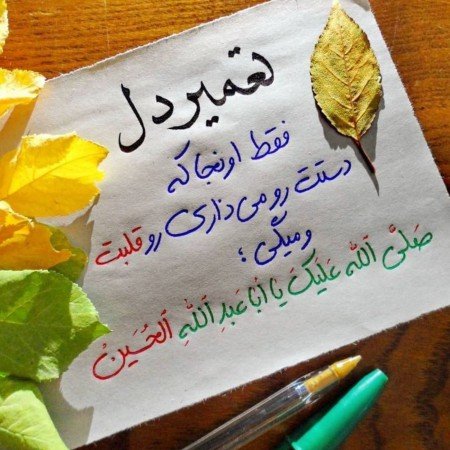 تعمیر دل
فقط اونجا که
دستت رو می داری رو قلبت
و میگی ؛
صَلَّی اَللّه عَلَیکَ یا اَبا عَبدِ اَللّهِ اَلحُسَینْ